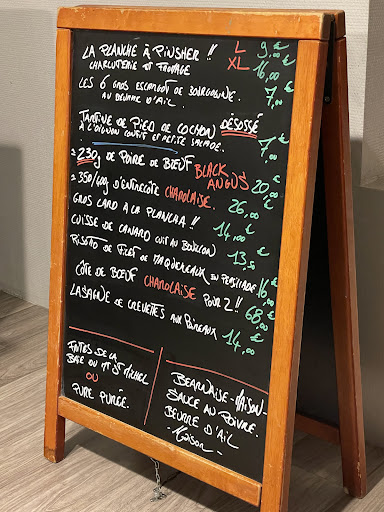 LA PLANCHE À PINSHER !! L 9,00 €
CHARCUTERIE ET FROMAGE XL 16,00 €
LES 6 GROS ESCARGOT DE BOURGOGNE. 7,00 €
AU BEURRE D'AIL.
TARTINE DE PIED DE COCHON DÉSOSSÉ
À L'OIGNON CONFIT ET PETITE SALADE. 7,00 €
± 230g DE POIRE DE BŒUF BLACK ANGUS 20,00 €
± 350/400g D'ENTRECÔTE CHAROLAISE. 26,00 €
GROS CALO A LA PLANCHA !! 14,00 €
CUISSE DE CANARD CUIT AU BOUILLON 13,50 €
RISOTTO DE FILET DE MAQUEREAUX EN PERSILLADE 16,00 €
CÔTE DE BŒUF CHAROLAISE POUR 2 !! 68,00 €
LASAGNE DE CREVETTES AUX POIREAUX 14,00 €
FRITES DE LA
BAIE DU MT ST MICHEL
OU
PURE PURÉE.
BEARNAISE - MAISON -
SAUCE AU POIVRE.
BEURRE D'AIL
- MAISON -